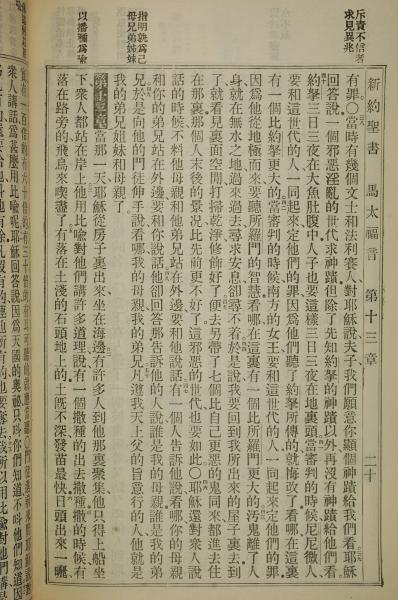 斥責不信者
求見異兆
指明孰為己
母兄弟姊妹
以播種為喻
新約聖書 馬太福音 第十三章 二十
有罪〇當時有幾個文士和法利賽人對耶穌說夫子我們願意你顯個神蹟給我們看耶穌
回答說一個邪惡淫亂的世代求神蹟但除了先知約拏的神蹟以外再沒有神蹟給他們看
約拏三日三夜在大魚肚腹中人子也要這樣三日三夜在地裏頭當審判的時候尼尼微人
要和這世代的人一同起來定他們的罪因為他們聽了約拏所傳的就悔改了看哪在這裏
有一個比約拏更大的當審判的時候南方的女王要和這世代的人一同起來定他們的罪
因為他從地極而來要聽所羅門的智慧看哪在這裏有一個比所羅門更大的污鬼離了人
身就在無水之地過來過去尋求安息卻尋不着於是說我要回到我所出來的屋子裏去到
了就看見裏面空閒打掃乾淨修飾好了便去另帶了七個比自己更惡的鬼同來都進去住
在那裏那個人末後的景況比先前更不好了這邪惡的世代也要如此〇耶穌還對眾人說
話的時候不料他母親和他弟兄站在外邊要和他說話有一個人告訴他說看哪你的母親
和你的弟兄站在外邊要和你說話他卻回答那告訴他的人說誰是我的母親誰是我的弟
兄於是向他的門徒伸手說看哪我的母親我的弟兄凡遵我天上父的旨意行的人他就是
我的弟兄姐妹和母親了
第十三章當那一天耶穌從房子裏出來坐在海邊有許多人到他那裏聚集他只得上船坐
下眾人都站在岸上他用比喻對他們講許多道理說有一個撒種的出去撒種撒的時候有
落在路旁的飛鳥來喫盡了有落在土淺的石頭地上的土既不深發苗最快日頭出來一曬